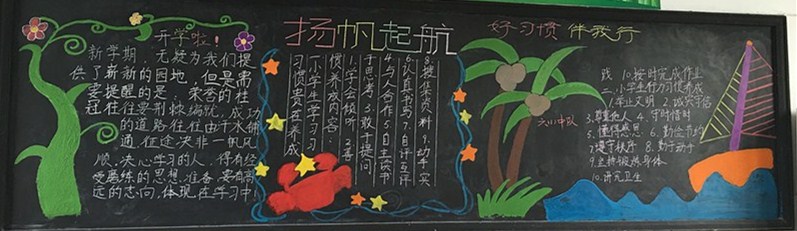 开学啦！
新学期，无疑为我们提
供了崭新的园地，但是需
要提醒的是，荣誉的桂
冠往往要荆棘编就，成功
的道路往往由汗水铺
通，征途决非一帆风
顺，决心学习的人，得有经
受磨练的思想准备，要有高
远的志向，体现在学习中！
扬帆起航
习惯贵在养成
一、小学生学习习
惯养成内容：
1.学会倾听 2.善
于思考 3.敢于提问
4.与人合作 5.自主读书
6.认真书写 7.自评互评
8.搜集资料 9.动手实
好习惯 伴我行
践 10.按时完成作业
二、小学生行为习惯养成
1.举止文明 2.诚实守信
3.尊重他人 4.守时惜时
5.懂得感恩 6.勤俭节约
7.遵守秩序 8.勤于动手
9.坚持锻炼身体
10.讲究卫生